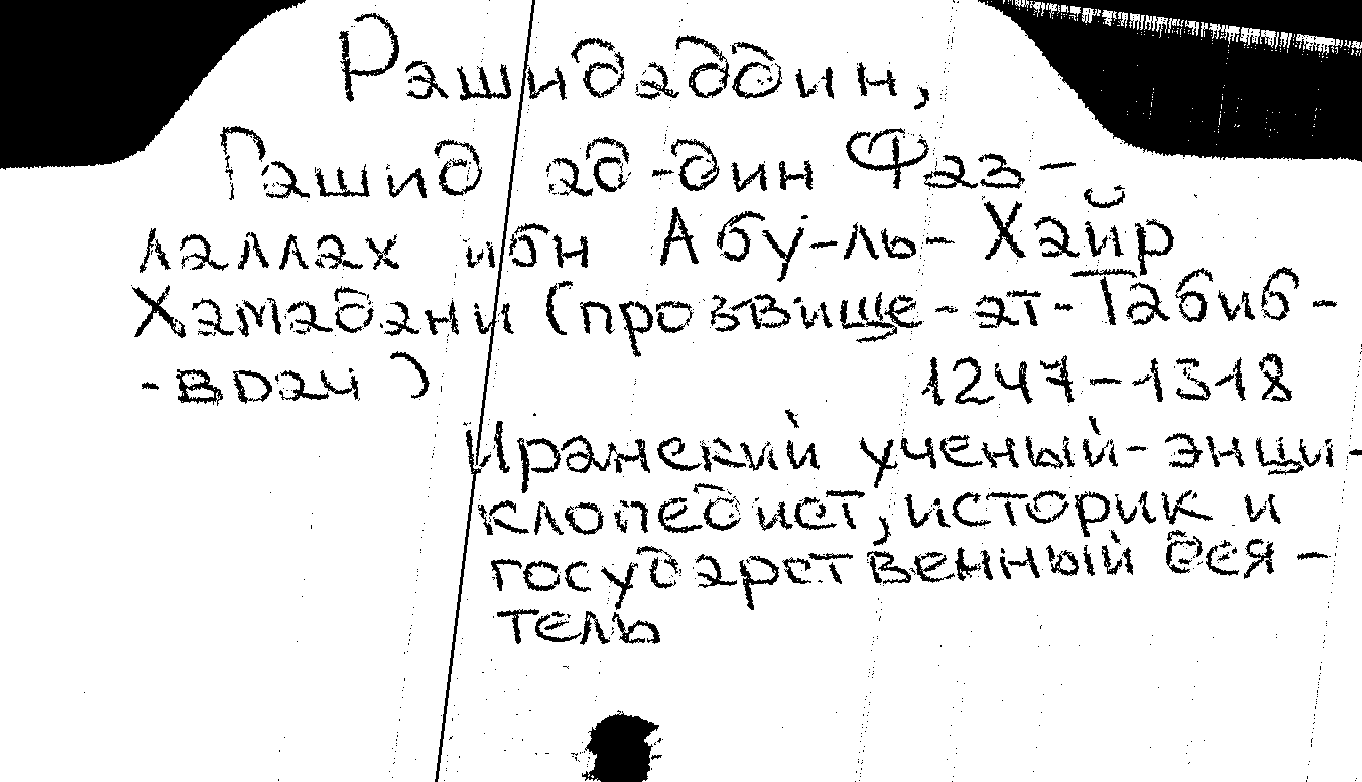 Рашидаддин,
Рашид ад-дин Фаз-
лаллах ибн Абу-ль-Хайр
Хамадани (прозвище-ат-Табиб-
-врач) 1247-1318
Иранский ученый-энци-
клопедист, историк и
государственный дея-
тель